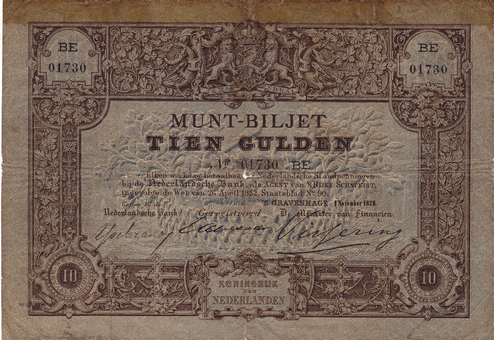 BE
01730
BE
01730
MUNT-BILJET
TIEN GULDEN
Nº 01730 BE
elken werkdag betaalbaar in Nederlandsche Standpenningen
bij de Nederlandsche Bank, als AGENT van 'S RIJKS SCHATKIST,
ingevolge de Wet van 26 April 1852, Staatsblad Nº 90.
'S GRAVENHAGE 1878
Nederlandsche Bank Geregistreerd De Minister van Financien
10
10
KONINGRIJK
DER
NEDERLANDEN